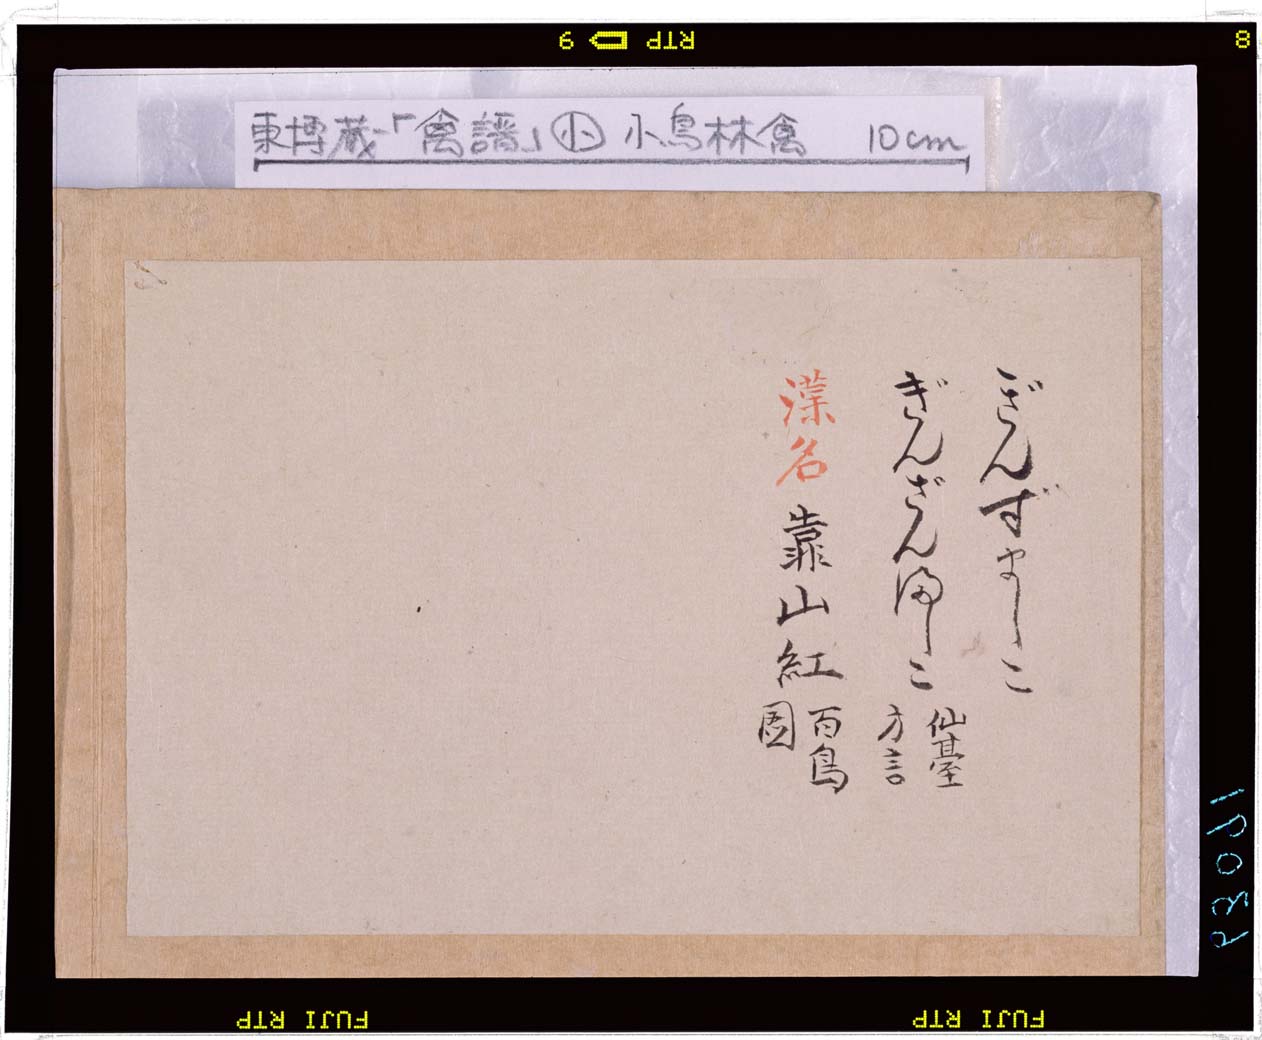 RTP 9
8
東博蔵「禽譜」小 小鳥林禽 10cm
ござんずましこ
ぎんざんましこ
仙臺
方言
漢名 靠山紅
百鳥
圖
FUJI RTP
FUJI RTP